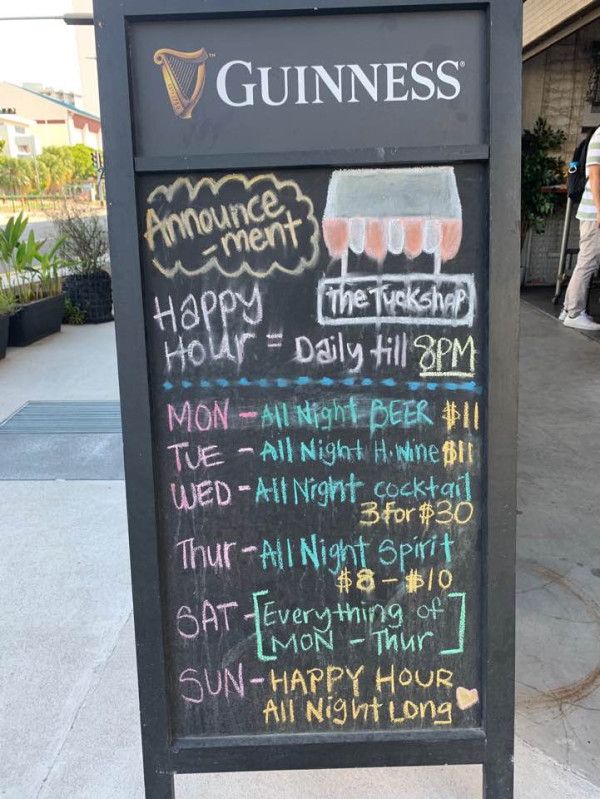 GUINNESS
Announce
-ment
The Tuckshop
Happy
Hour = Daily till 8PM
MON - All Night BEER $11
TUE - All Night H.Wine $11
WED - All Night cocktail
3 for $30
Thur - All Night Spirit
$8 - $10
SAT - [Everything of
MON - Thur]
SUN - HAPPY HOUR
All Night Long